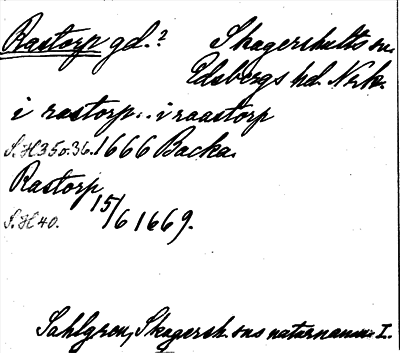 Rastorp gd.² Skagershults sn.
Edsbergs hd. Nrk.
i rastorp.. i raastorp
S.H 350:36. 1666 Backa.
Rastorp
S.H 40. 15/6 1669.
Sahlgren, Skagersh. sns naturnamn I.